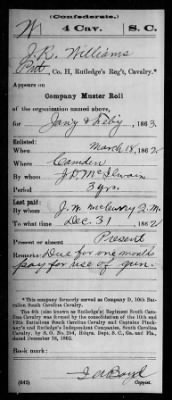 (Confederate.)
W 4 Cav. S. C.
J. R. Williams
Pvt., Co. H, Rutledge's Reg't, Cavalry.*
Appears on
Company Muster Roll
of the organization named above,
for Jany & Feby, 1863.
Enlisted:
When March 18, 1862
Where Camden
By whom J. D. McIlwain
Period 3 yrs.
Last paid:
By whom J. W. McCurry Q. M.
To what time Dec 31, 1862
Present or absent Present
Remarks: Due for one months
pay for use of gun.
*This company formerly served as Company D, 10th Bat-
talion South Carolina Cavalry.
The 4th (also known as Rutledge's) Regiment South Caro-
lina Cavalry was formed by the consolidation of the 10th and
12th Battalions South Carolina Cavalry and Captains Pinck-
ney's and Rutledge's Independent Companies, South Carolina
Cavalry, by S. O. No. 254, Hdqrs. Dept. S. C., Ga. and Fla.,
dated December 16, 1862.
Book mark:
(642)
Copyist.